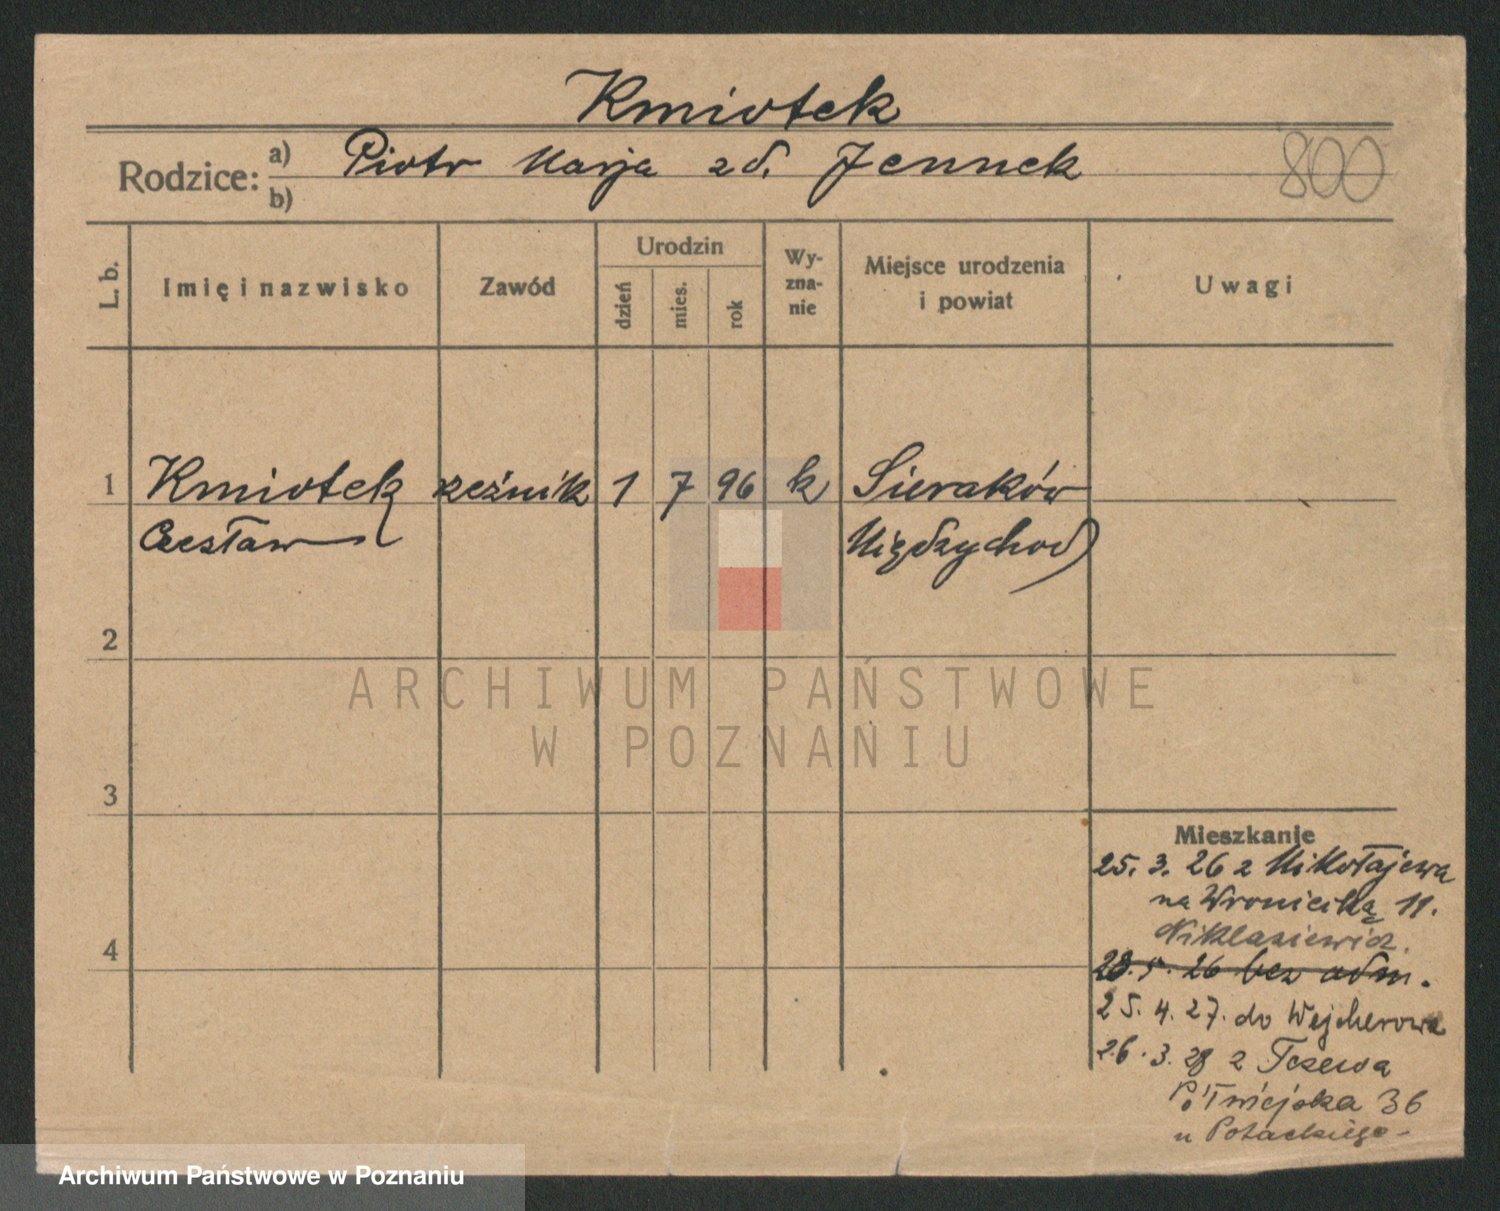 Kmiotek
Rodzice: a) Piotr Marja zd. Jennek
b)
800
L. b.
Imię i nazwisko
Zawód
Urodzin
dzień
mies.
rok
Wy-
zna-
nie
Miejsce urodzenia
i powiat
Uwagi
1 Kmiotek rzeźnik 1 7 96 k Sieraków
Czesław Międzychod
2
3
4
Mieszkanie
25. 3. 26 z Mikołajewa
na Wroniecką 11.
Niklasiewicz.
28. 5. 26 bez adm.
25. 4. 27. do Wejcherowa
26. 3. 28 z Tczewa
Półwiejska 36
u Potackiego
ARCHIWUM PAŃSTWOWE
W POZNANIU
Archiwum Państwowe w Poznaniu